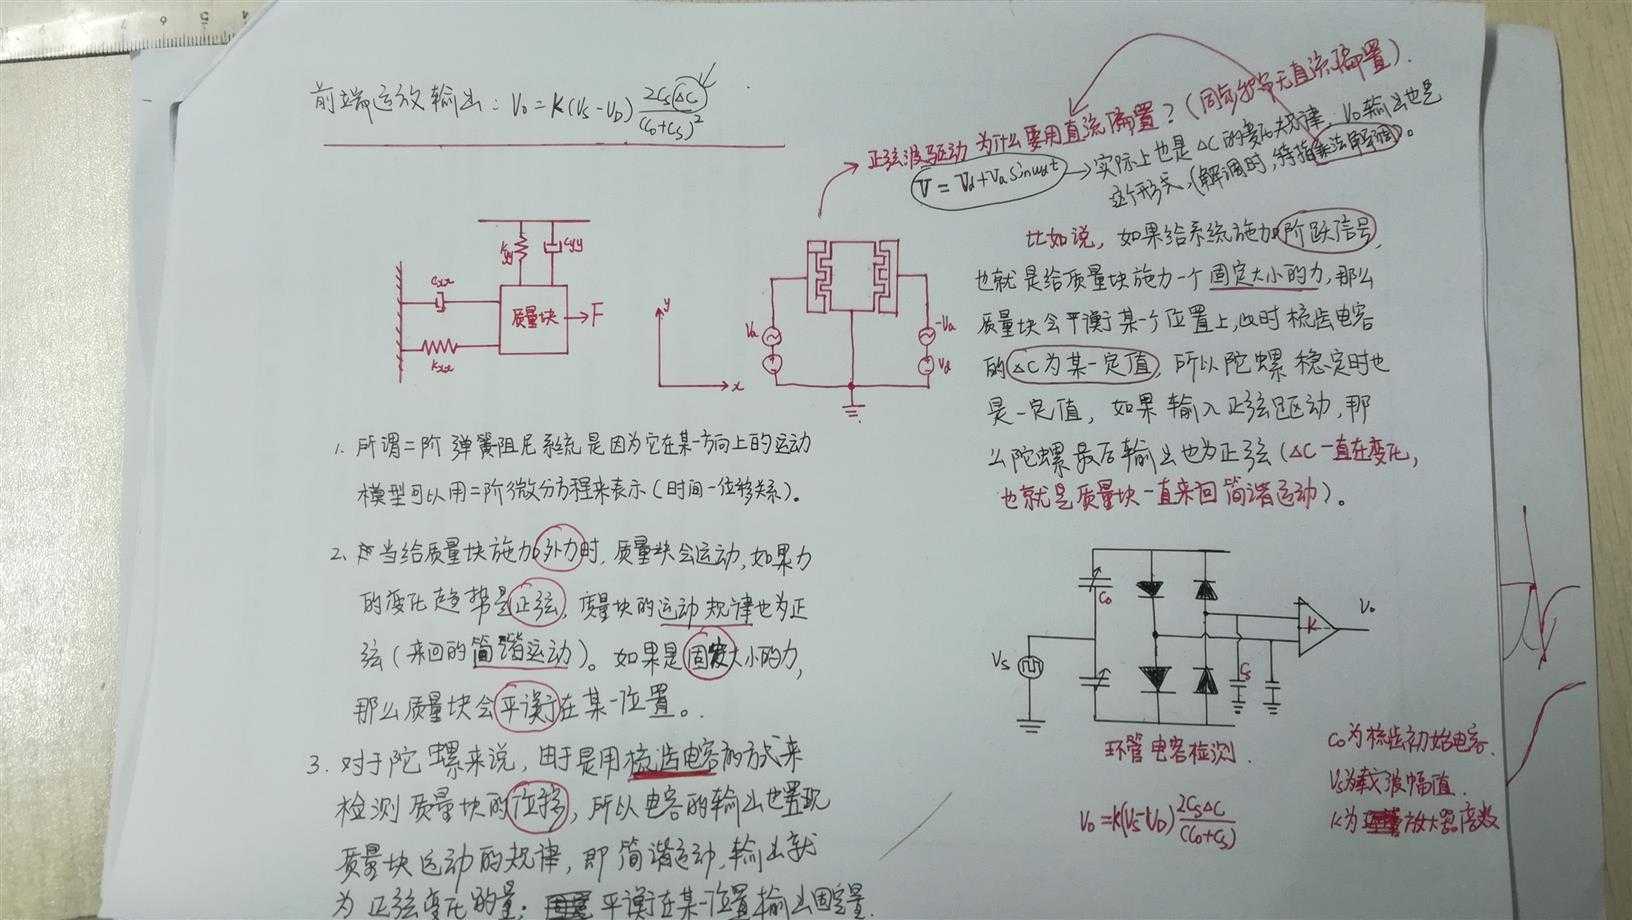 前端运放输出：V₀=K(Vs-VD) 2Cs(ΔC)/(C₀+Cs)²
正弦波驱动为什么要用直流偏置？(同与地等无直流偏置).
V=Vd+Va sinωdt → 实际上也是ΔC的变化规律，V₀输出也是
这个形式，(解调时，特指乘法解调)。
Kyy
Cyy
Cxx
质量块
F
Kxx
y
x
Va
-Va
Vd
比如说，如果给系统施加阶跃信号，
也就是给质量块施力一个固定大小的力，那么
质量块会平衡某一个位置上，此时梳齿电容
的ΔC为某一定值，所以陀螺稳定时也
是一定值，如果输入正弦驱动，那
么陀螺最后输出也为正弦(ΔC一直在变化，
也就是质量块一直来回简谐运动)。
1. 所谓二阶弹簧阻尼系统是因为它在某一方向上的运动
模型可以用二阶微分方程来表示(时间-位移关系)。
2、当给质量块施加外力时，质量块会运动，如果力
的变化趋势是正弦，质量块的运动规律也为正
弦(来回的简谐运动)。如果是固定大小的力，
那么质量块会平衡在某一位置。
3. 对于陀螺来说，由于是用梳齿电容的方式来
检测质量块的位移，所以电容的输出也置现
质量块运动的规律，即简谐运动，输出就
为正弦变化的量；平衡在某一位置输出固定量.
C₀
Vs
K
V₀
Cs
环管电容检测.
V₀=K(Vs-VD) 2CsΔC/(C₀+Cs)
C₀为梳齿初始电容.
Vs为载波幅值.
K为放大器倍数